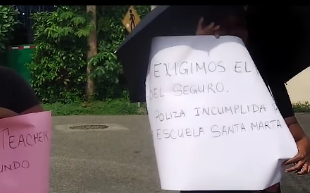 EXIGIMOS EL
EL SEGURO.
POLIZA INCUMPLIDA
ESCUELA SANTA MARTA
TEACHER
UNDO